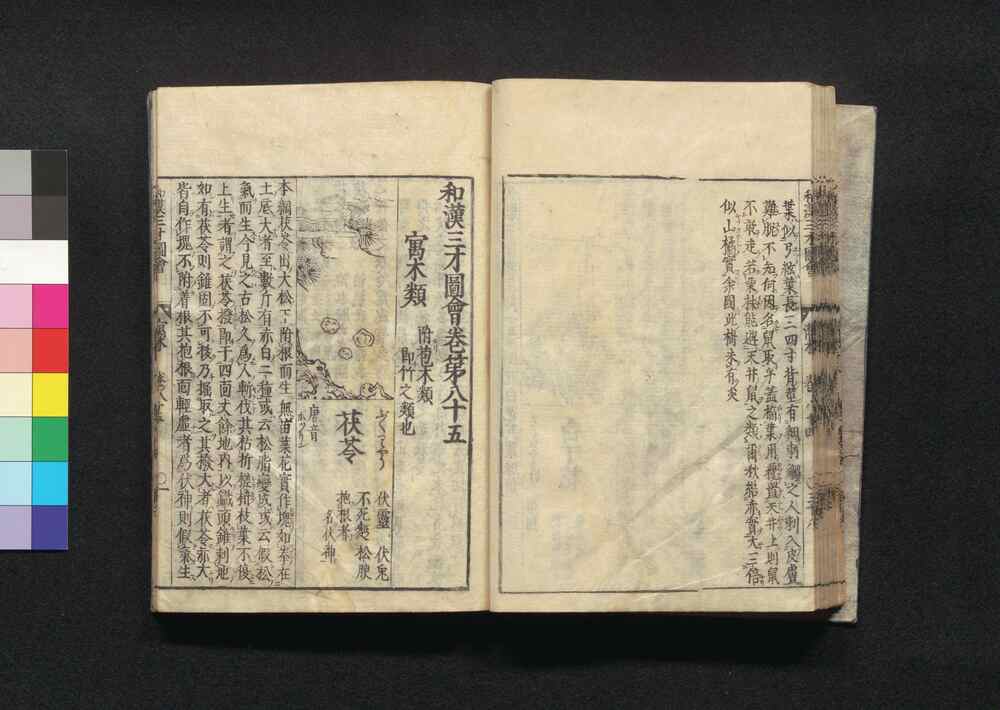 葉似弓絃葉長三四寸背莖有細刺觸之人刺入皮膚
難脱不知何因名鼠取乎蓋樹葉用覆置天井上則鼠
不敢走若栗毬能避天井鼠之類爾秋結赤實大三倍
似山橘實余國此樹未有矣
和漢三才圖會
和漢三才圖會卷第八十五
寓木類
附苞木類
即竹之類也
茯苓
唐音
伏靈 伏兎
不死麪 松腴
抱根者
名伏神
本綱茯苓出大松下附根而生無苗葉花實作塊如拳在
土底大者至數斤有赤白二種或云松脂變成或云假松
氣而生今見之古松久爲人斬伐其枯折槎枿枝葉不復
上生者謂之茯苓撥即于四面丈餘地内以鐵頭錐刺地
如有茯苓則錐固不可拔乃掘取之其撥大者茯苓亦大
皆自作塊不附着根其抱根而輕虛者爲伏神則假氣生
和漢三才圖會